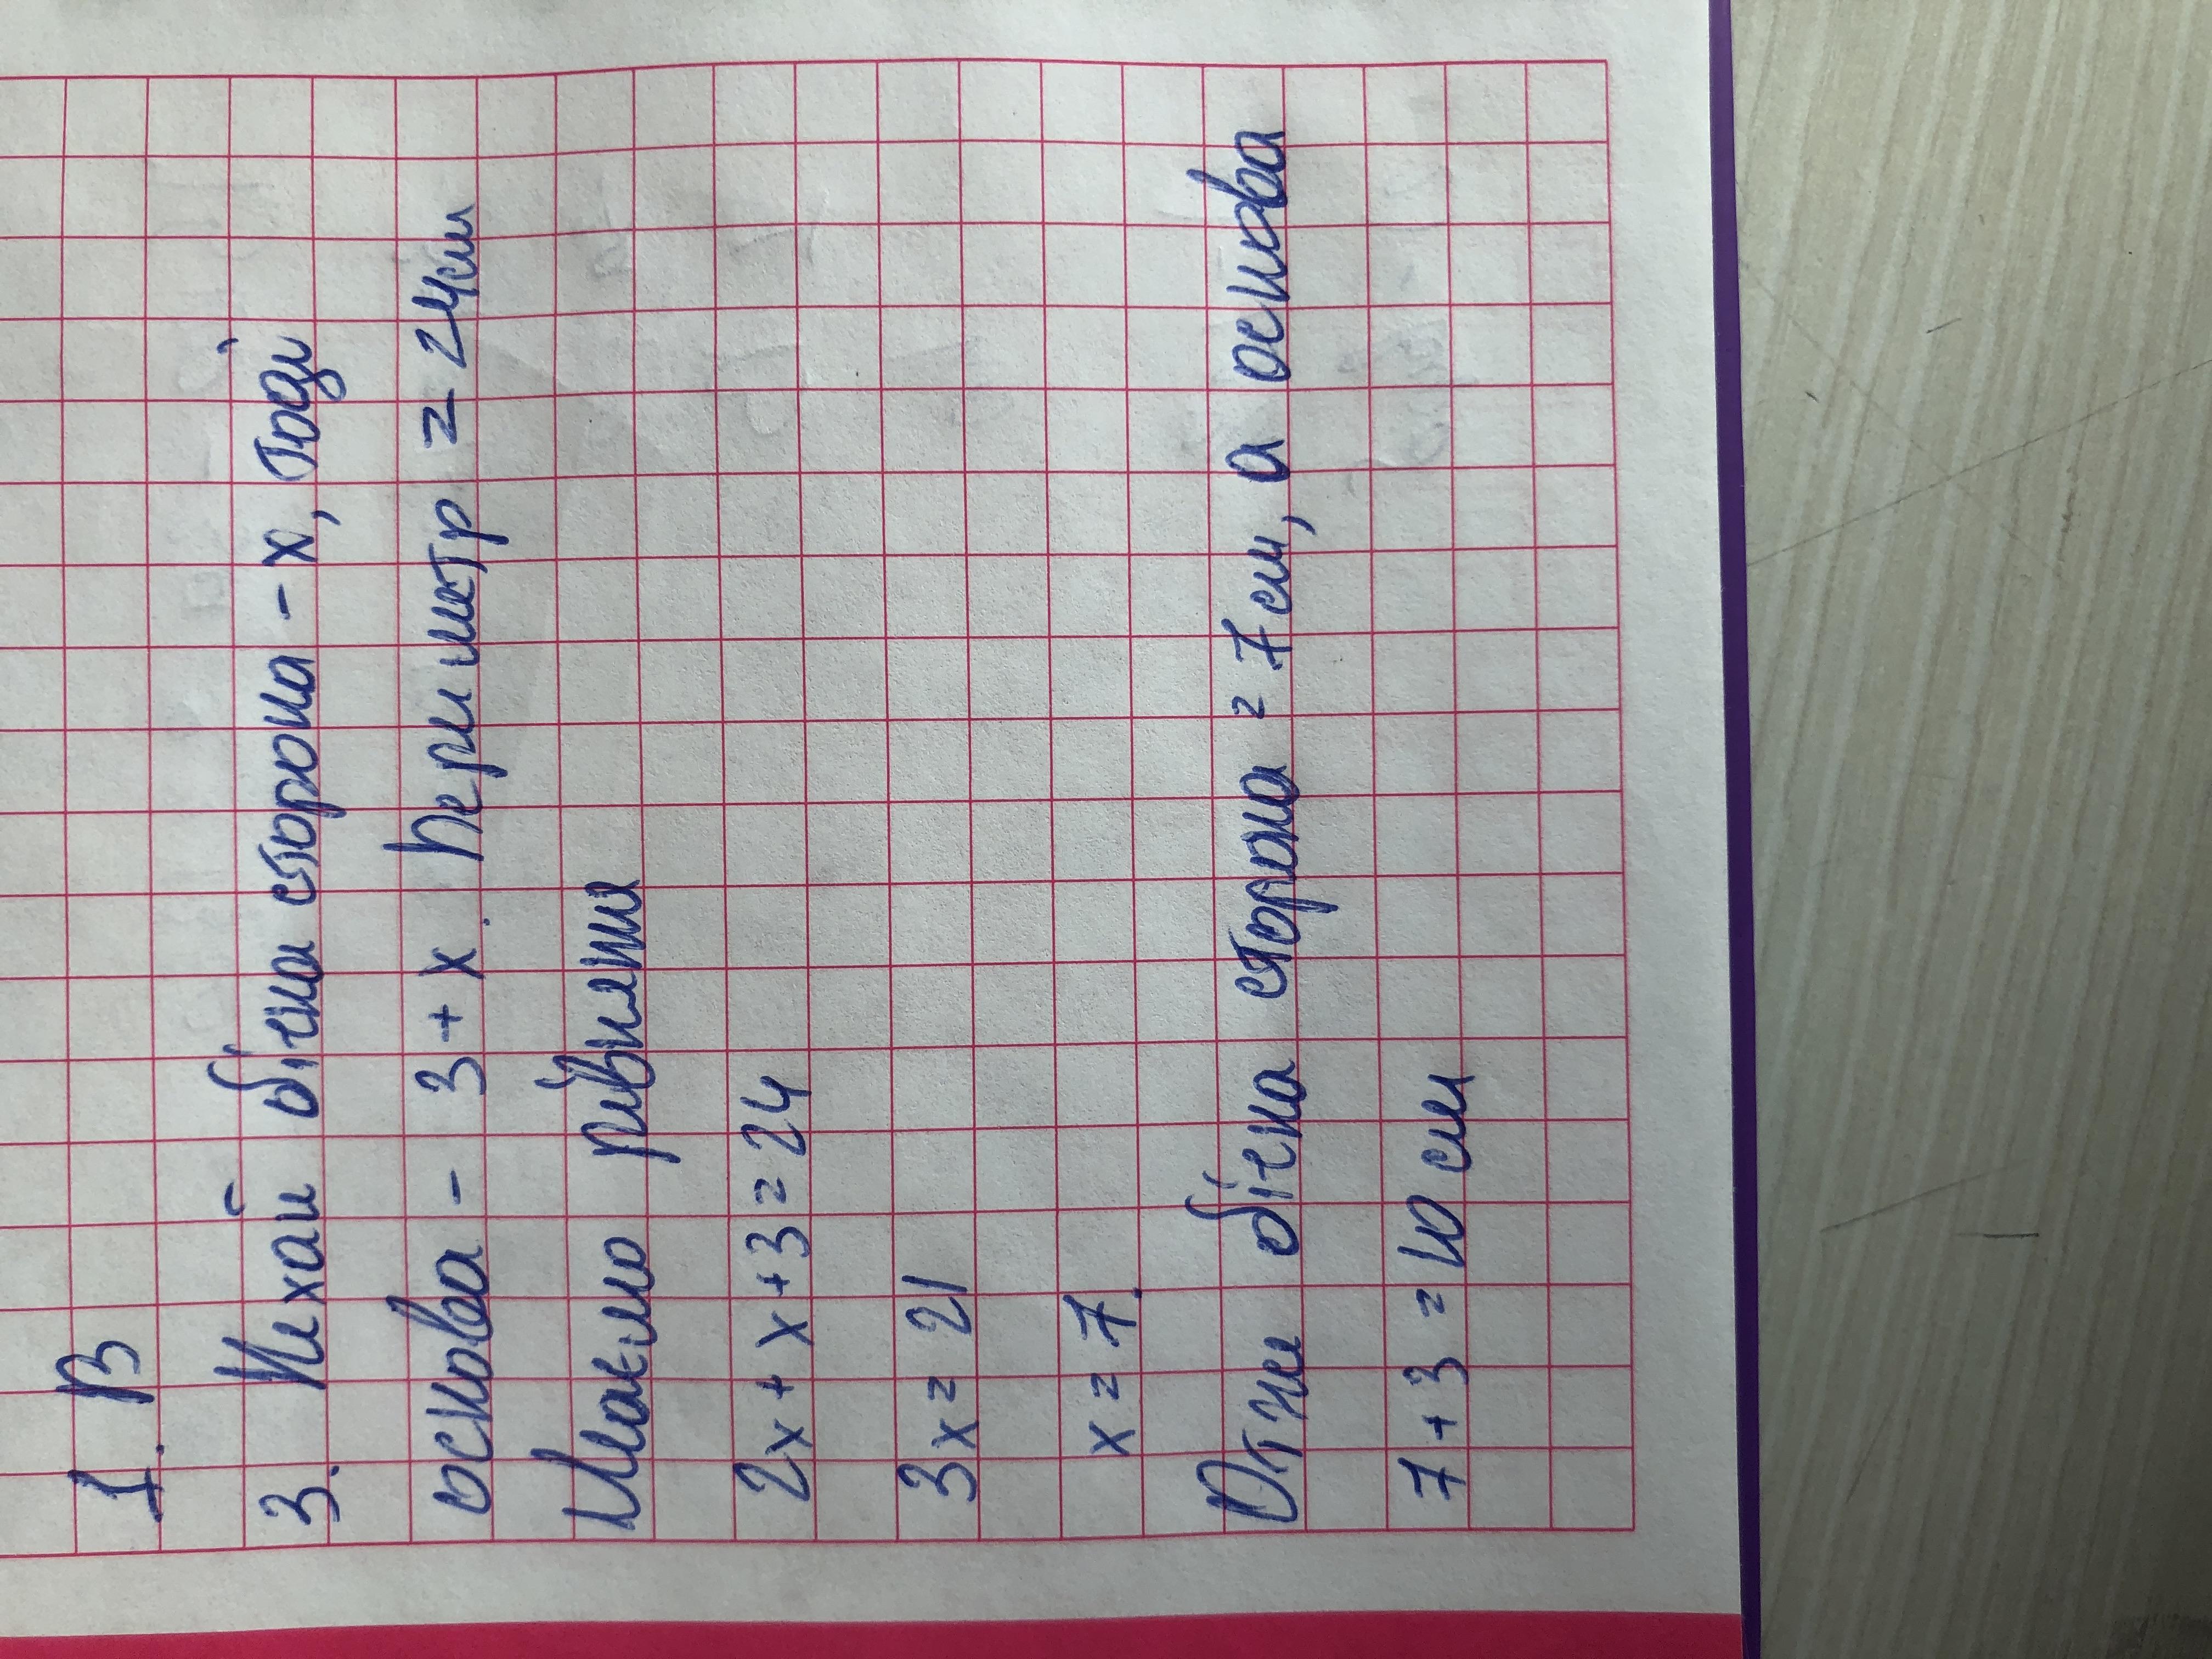 1. В
3. Нехай бічна сторона - х, тоді
основа - 3 + х. Периметр = 24см
Маємо рівняння
2х + х + 3 = 24
3х = 21
х = 7.
Отже бічна сторона = 7см, а основа
7 + 3 = 10 см